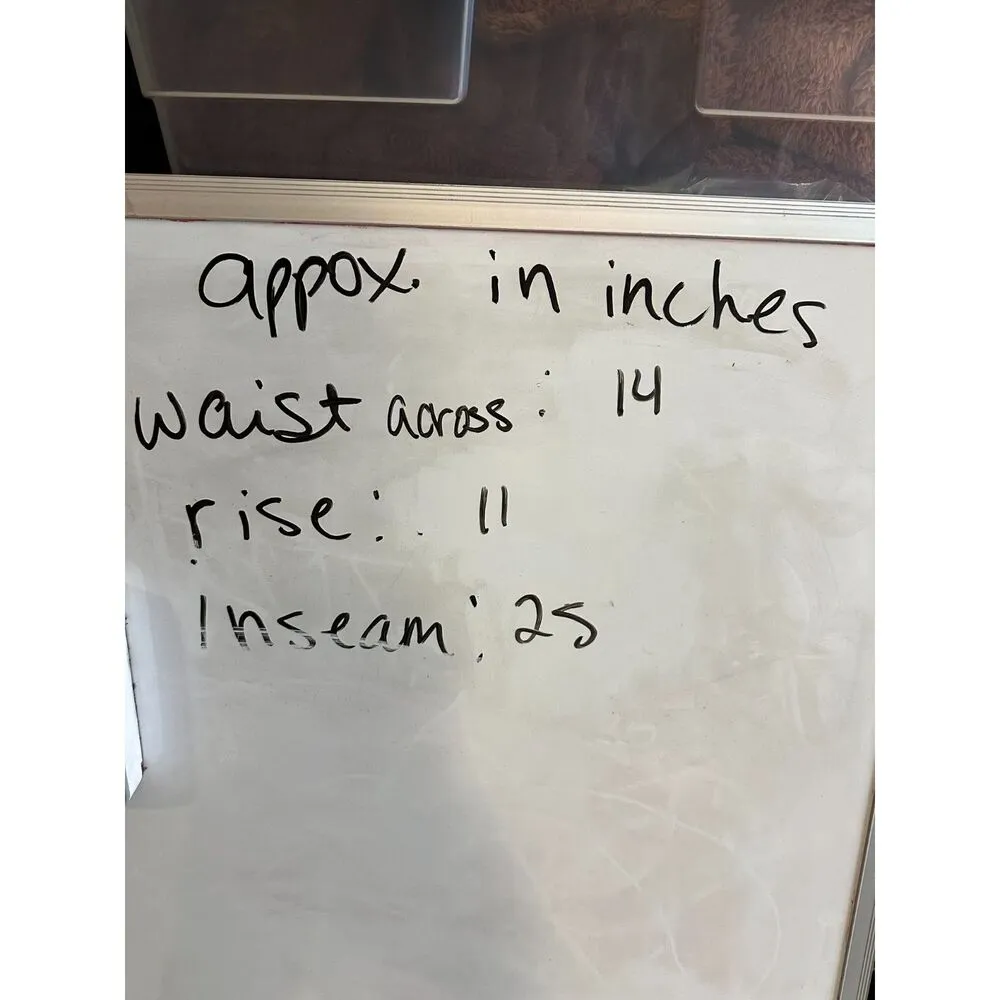 appox. in inches
waist across: 14
rise: 11
Inseam: 25